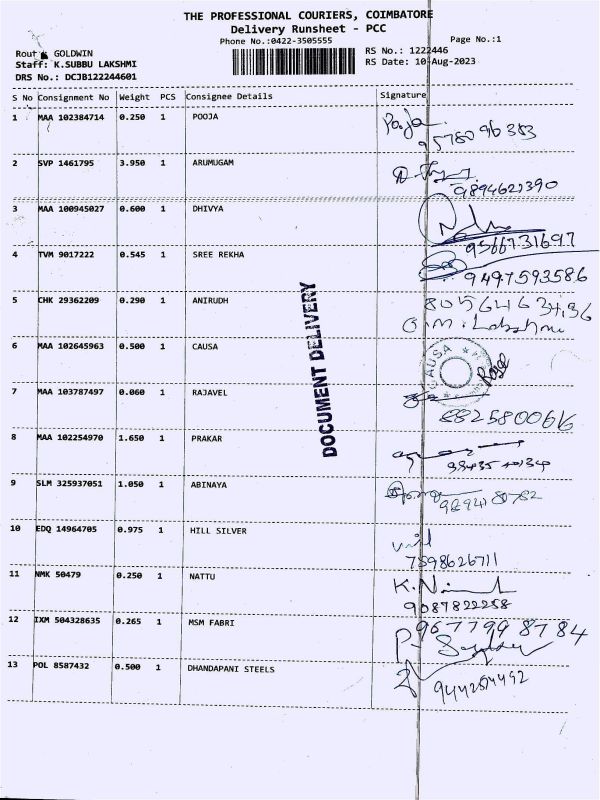 THE PROFESSIONAL COURIERS, COIMBATORE
Delivery Runsheet - PCC
Phone No.:0422-3505555
Page No.:1
Rout GOLDWIN
RS No.: 1222446
Staff: K.SUBBU LAKSHMI
RS Date: 10-Aug-2023
DRS No.: DCJB122244601
S No Consignment No Weight PCS Consignee Details Signature
1 MAA 102384714 0.250 1 POOJA Pooja
9578096383
2 SVP 1461795 3.950 1 ARUMUGAM
9894621390
3 MAA 100945027 0.600 1 DHIVYA
9566731697
4 TVM 9017222 0.545 1 SREE REKHA
9497593586
5 CHK 29362209 0.290 1 ANIRUDH 8056463436
6 MAA 102645963 0.500 1 CAUSA CAUSA
7 MAA 103787497 0.060 1 RAJAVEL
8825800616
8 MAA 102254970 1.650 1 PRAKAR
9 SLM 325937051 1.050 1 ABINAYA
10 EDQ 14964705 0.975 1 HILL SILVER
7598626711
11 NMK 50479 0.250 1 NATTU
9087822258
12 IXM 504328635 0.265 1 MSM FABRI 9677998784
13 POL 8587432 0.500 1 DHANDAPANI STEELS
DOCUMENT DELIVERY